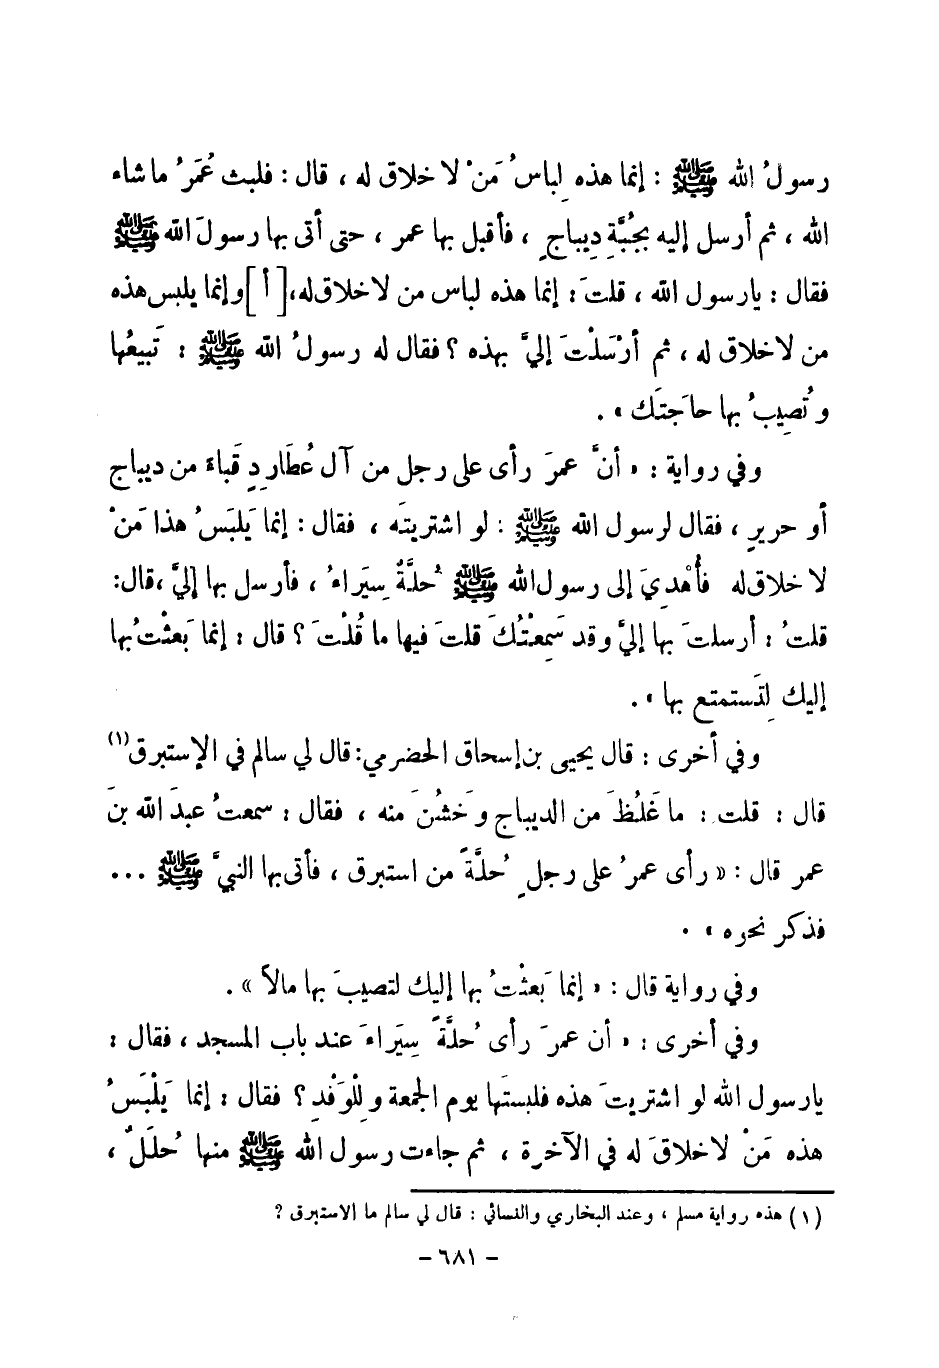 رسولُ الله ﷺ : إنما هذه لِباسُ مَنْ لا خلاق له ، قال : فلبث عُمَرُ ما شاء
الله ، ثم أرسل إليه بجُبَّةِ دِيباجٍ ، فأقبل بها عمر ، حتى أتى بها رسولَ الله ﷺ
فقال : يا رسول الله ، قلتَ : إنما هذه لباس من لا خلاق له، [ أ ] وإنما يلبس هذه
من لا خلاق له ، ثم أرْسَلْتَ إليَّ بهذه ؟ فقال له رسولُ الله ﷺ : تَبيعُها
وتُصِيبُ بها حاجَتَك » .
وفي رواية : « أنَّ عمرَ رأى على رجل من آل عُطَارِدٍ قَباءً من ديباج
أو حريرٍ ، فقال لرسول الله ﷺ : لو اشتريتَه ، فقال : إنما يَلبَسُ هذا مَنْ
لا خلاق له فأُهْدِيَ إلى رسول الله ﷺ حُلَّةٌ سِيَراءُ ، فأرسل بها إليَّ ، قال:
قلتُ : أرسلتَ بها إليَّ وقد سَمِعْتُكَ قلتَ فيها ما قُلْتَ ؟ قال : إنما بَعثْتُ بها
إليك لِتَستمتع بها » .
وفي أخرى : قال يحيى بن إسحاق الحضرمي: قال لي سالم في الإستبرق(١)
قال : قلت : ما غَلُظَ من الديباج وخَشُنَ منه ، فقال : سمعتُ عبدَ الله بنَ
عمر قال : « رأى عمرُ على رجلٍ حُلَّةً من استبرق ، فأتى بها النبيَّ ﷺ ...
فذكر نحوه » .
وفي رواية قال : « إنما بَعثْتُ بها إليك لتصيبَ بها مالاً » .
وفي أخرى : « أن عمرَ رأى حُلَّةً سِيَراءَ عند باب المسجد ، فقال :
يا رسول الله لو اشتريتَ هذه فلبستَها يوم الجمعة وللْوَفْدِ ؟ فقال : إنما يَلْبَسُ
هذه مَنْ لا خلاقَ له في الآخرة ، ثم جاءت رسول الله ﷺ منها حُلَلٌ ،
(١) هذه رواية مسلم ، وعند البخاري والنسائي : قال لي سالم ما الاستبرق ؟
- ٦٨١ -